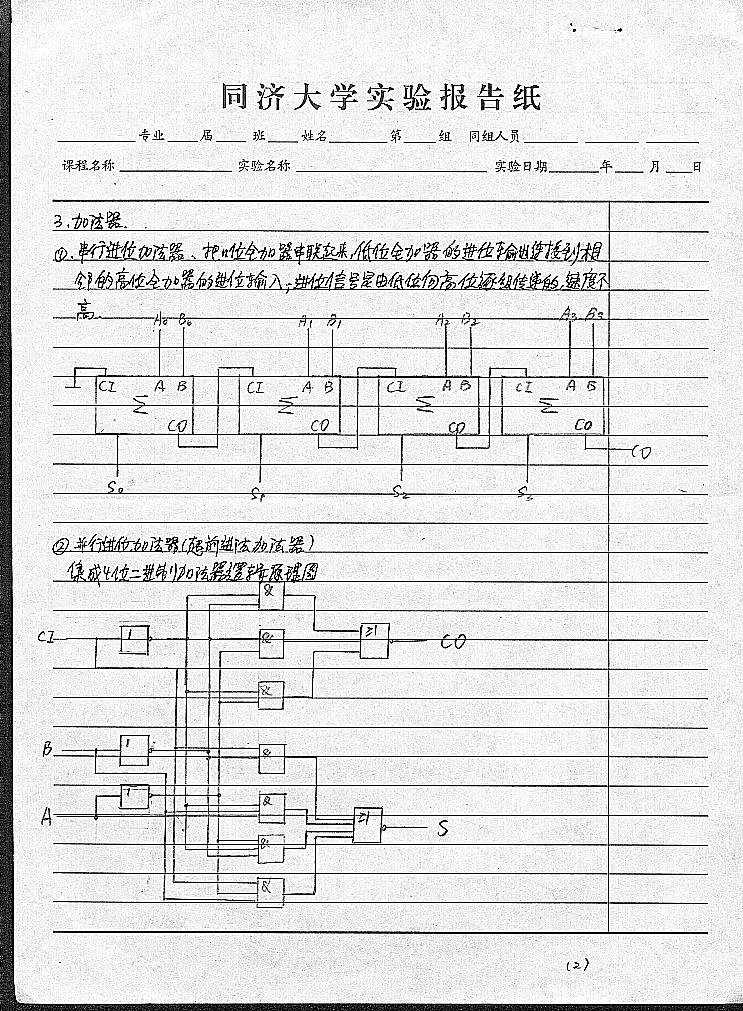 同济大学实验报告纸
专业 届 班 姓名 第 组 同组人员
课程名称 实验名称 实验日期 年 月 日
3.加法器.
①.串行进位加法器、把n位全加器串联起来,低位全加器的进位输出连接到相
邻的高位全加器的进位输入;进位信号是由低位向高位逐级传递的,速度不
高.
A₀ B₀ A₁ B₁ A₂ B₂ A₃ B₃
CI A B CI A B CI A B CI A B
Σ Σ Σ Σ
CO CO CO CO
CO
S₀ S₁ S₂ S₃
②.并行进位加法器(超前进法加法器)
集成4位二进制加法器逻辑原理图
&
CI 1 & ≥1 CO
&
B 1 &
1 &
A ≥1 S
&
&
(2)